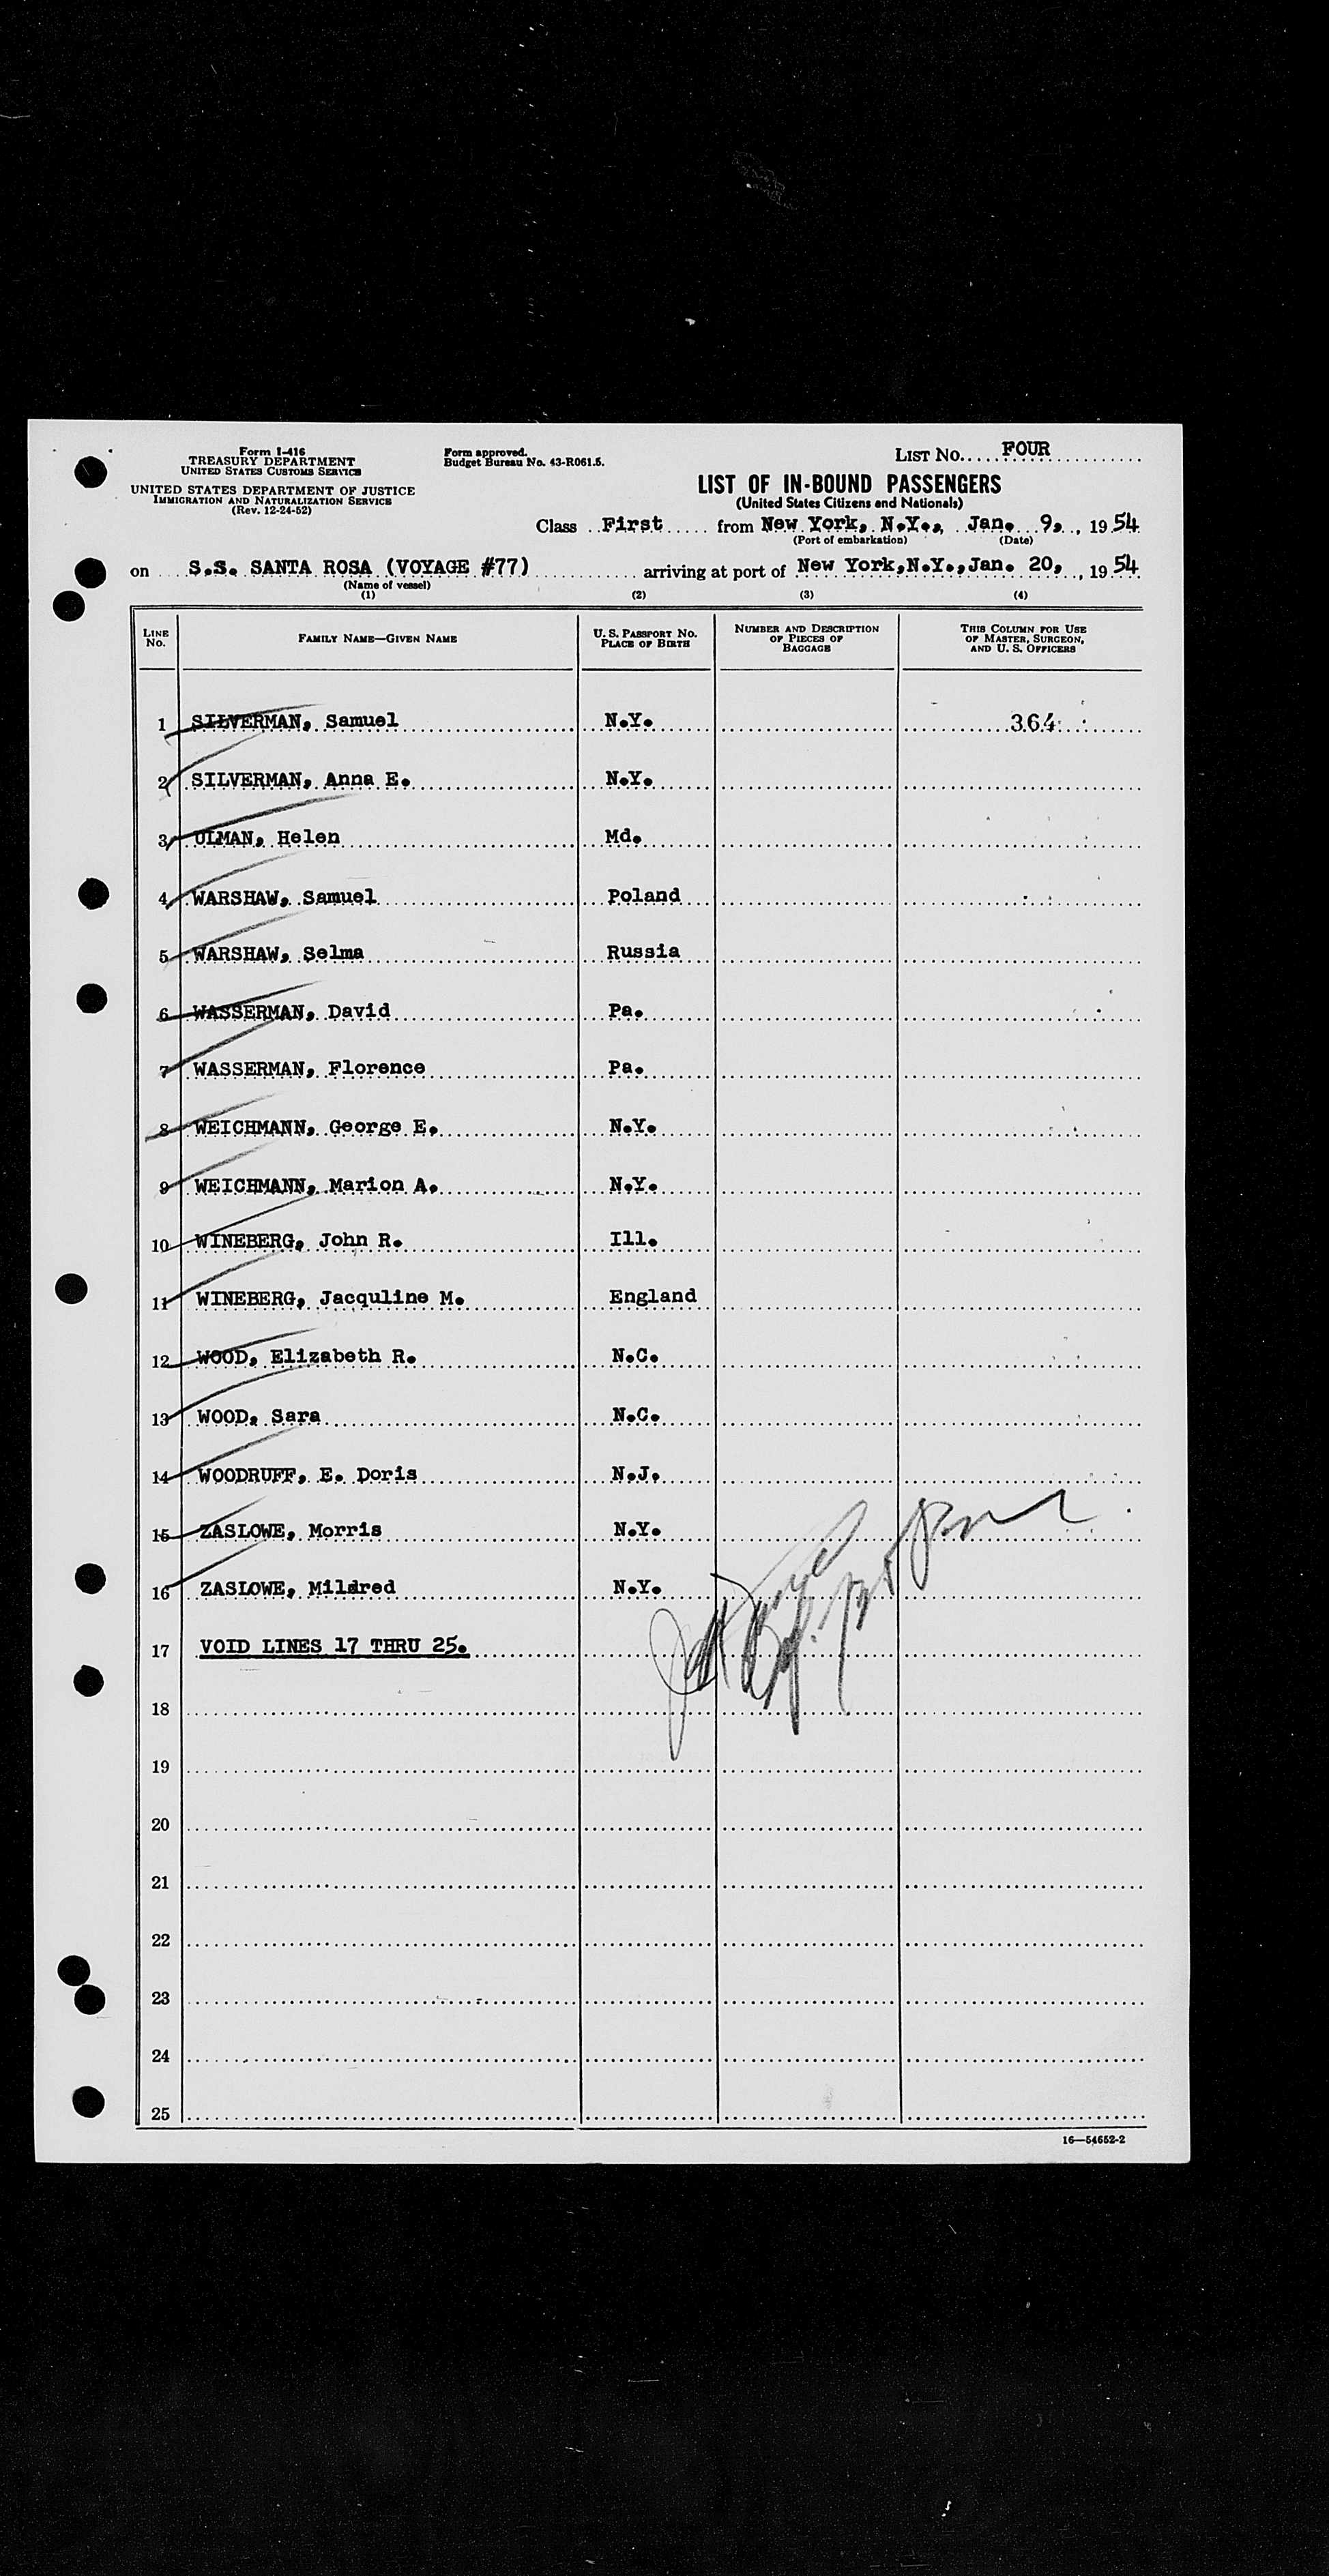 Form I-416
TREASURY DEPARTMENT
UNITED STATES CUSTOMS SERVICE
UNITED STATES DEPARTMENT OF JUSTICE
IMMIGRATION AND NATURALIZATION SERVICE
(Rev. 12-24-52)
Form approved.
Budget Bureau No. 43-R061.5.
LIST No. FOUR
LIST OF IN-BOUND PASSENGERS
(United States Citizens and Nationals)
Class First from New York, N.Y., Jan. 9, 1954
(Port of embarkation) (Date)
on S.S. SANTA ROSA (VOYAGE #77) arriving at port of New York, N.Y., Jan. 20, 1954
(Name of vessel)
(1) (2) (3) (4)
LINE No. FAMILY NAME—GIVEN NAME U. S. PASSPORT No. PLACE OF BIRTH NUMBER AND DESCRIPTION OF PIECES OF BAGGAGE THIS COLUMN FOR USE OF MASTER, SURGEON, AND U. S. OFFICERS
1 SILVERMAN, Samuel N.Y. 364
2 SILVERMAN, Anna E. N.Y.
3 ULMAN, Helen Md.
4 WARSHAW, Samuel Poland
5 WARSHAW, Selma Russia
6 WASSERMAN, David Pa.
7 WASSERMAN, Florence Pa.
8 WEICHMANN, George E. N.Y.
9 WEICHMANN, Marion A. N.Y.
10 WINEBERG, John R. Ill.
11 WINEBERG, Jacquline M. England
12 WOOD, Elizabeth R. N.C.
13 WOOD, Sara N.C.
14 WOODRUFF, E. Doris N.J.
15 ZASLOWE, Morris N.Y.
16 ZASLOWE, Mildred N.Y.
17 VOID LINES 17 THRU 25.
18
19
20
21
22
23
24
25
16—54652-2